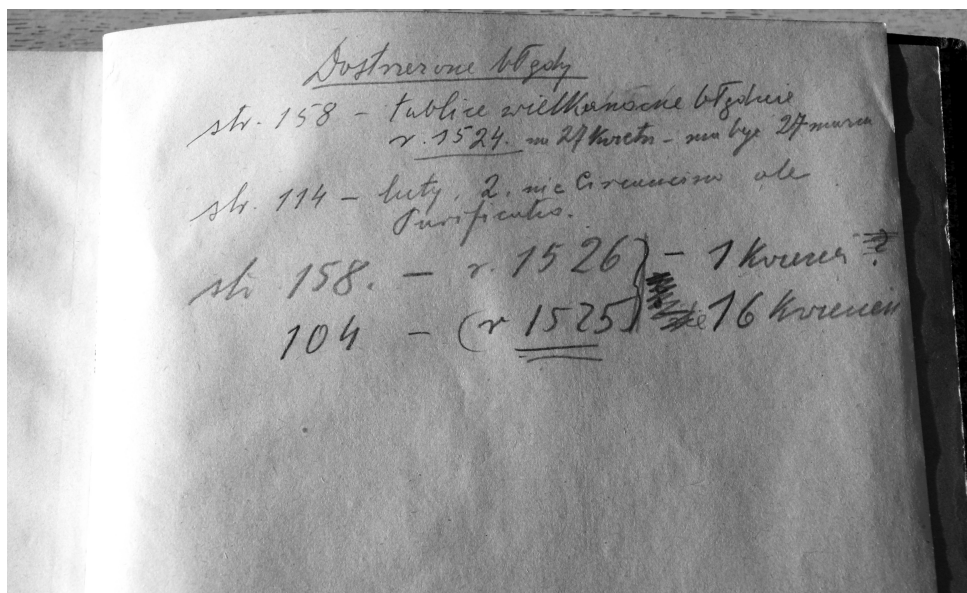 Dostrzeżone błędy
str. 158 – tablice wielkanocne błędnie
r. 1524. ma 27 kwietn – ma być 27 marca
str. 114 – luty, 2. nie Circumcisio ale
Purificatio.
str 158. – r. 1526 } – 1 Kwiecień ?
104 – (r 1525) 16 Kwiecień